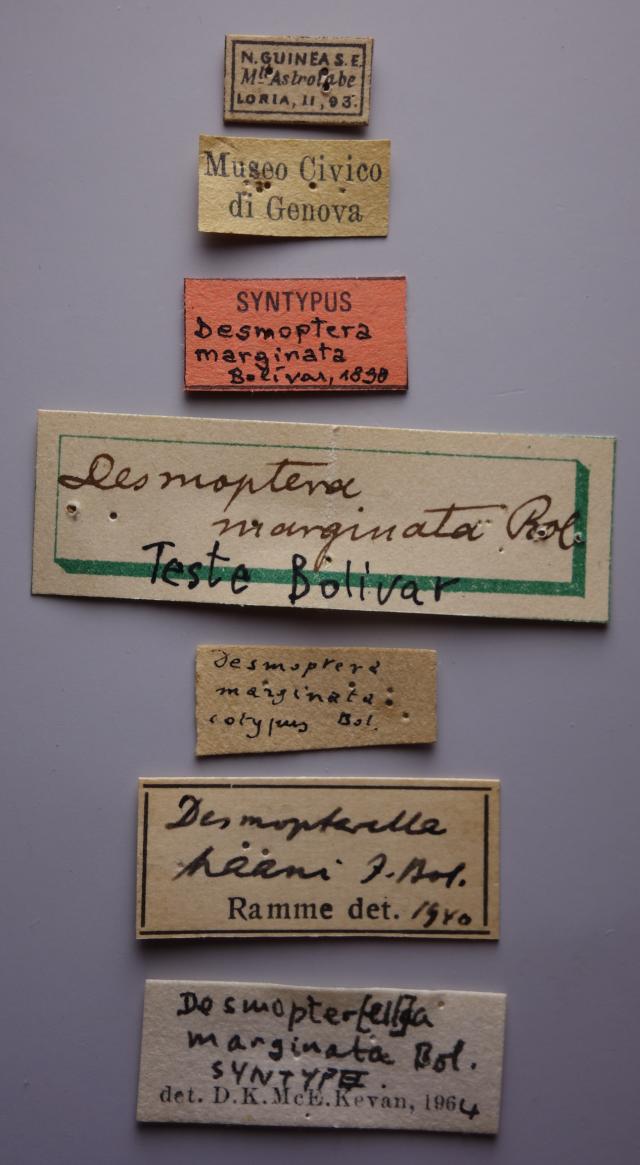 N. GUINEA S.E.
Mti Astrolabe
LORIA, II, 93.
Museo Civico
di Genova
SYNTYPUS
Desmoptera
marginata
Bolívar, 1898
Desmoptera
marginata Bol.
Teste Bolívar
Desmoptera
marginata
cotypus Bol.
Desmopterella
haani I. Bol.
Ramme det. 1940
Desmopter[ell]a
marginata Bol.
SYNTYPE.
det. D.K.McE.Kevan, 1964